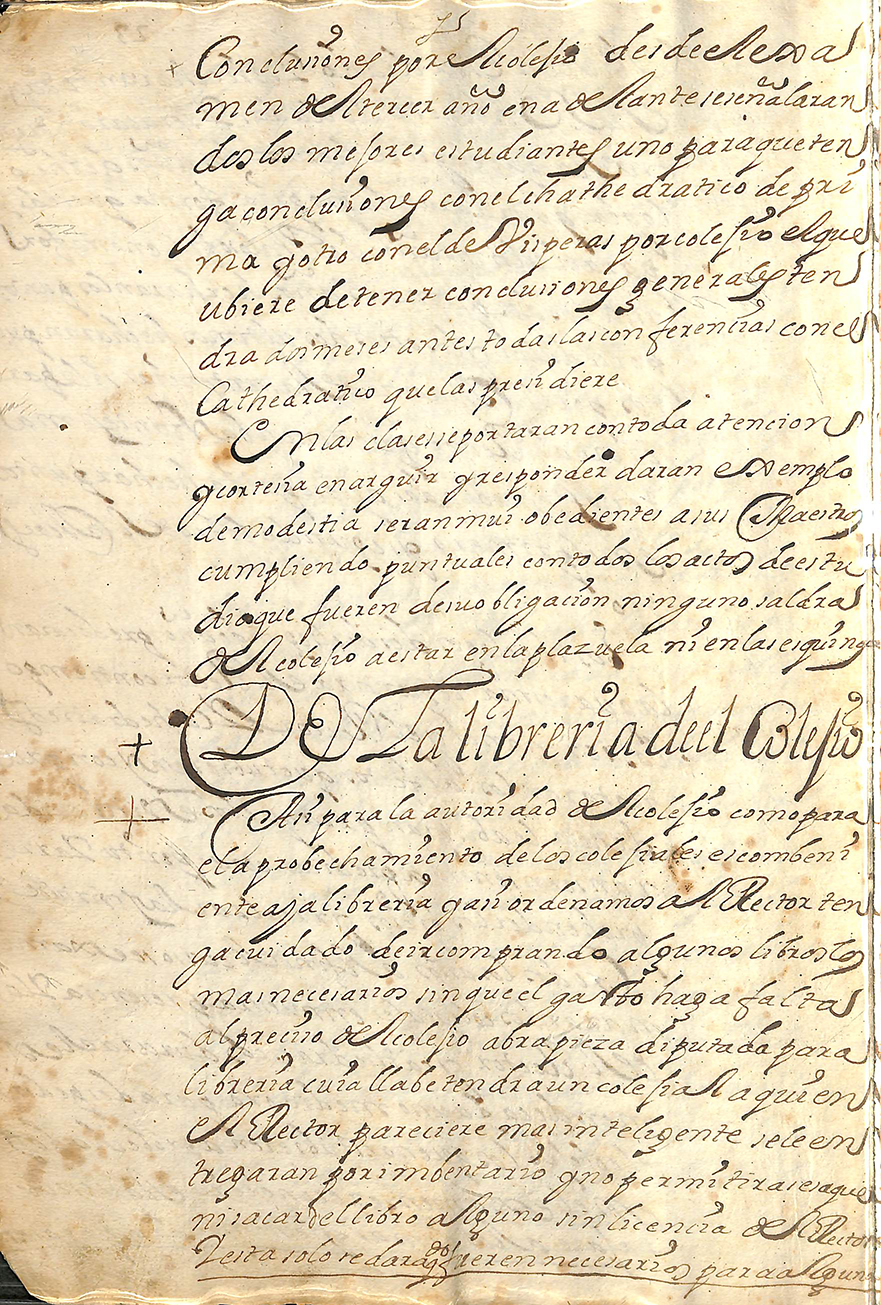 Conclusiones por el colesio desde el exa
men del tercer año en adelante se señalaran
dos los mejores estudiantes uno para que ten
ga conclusiones con el chathedratico de pri
ma y otro con el de Visperas por colesio el que
ubiere de tener conclusiones generales ten
dra dos meses antes todas las conferencias con el
Cathedratico que las presidiere
En las clases se portaran con toda atencion
y cortesia en arguir y responder daran exemplo
de modestia seran mui obedientes a sus Maestros
cumpliendo puntuales con todos los actos de estu
dio que fueren de su obligacion ninguno saldra
del colesio a estar en la plazuela ni en las esquinas
De La libreria deel Colesio
Asi para la autoridad del colesio como para
el aprobechamiento de los colesiales es combeni
ente aja libreria y asi ordenamos al Rector ten
ga cuidado de ir comprando algunos libros los
mas necesarios sin que el gasto haga falta
al preciso del colesio abra pieza diputada para
libreria cuia llabe tendra un colesial a quien
el Rector pareciere mas inteligente se le en
tregaran por imbentario y no permitira se saque
ni sacar del libro alguno sin licencia del Rector
Y esta solo se dara qdo fueren necesarios para alguna